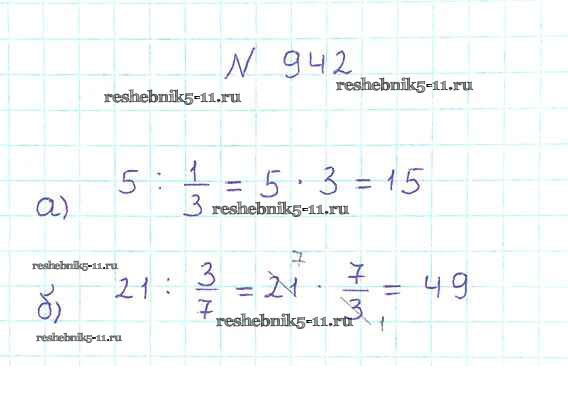 N 942
reshebnik5-11.ru
reshebnik5-11.ru
а) 5 : 1/3 = 5 · 3 = 15
reshebnik5-11.ru
reshebnik5-11.ru
б) 21 : 3/7 = 21 7 · 7/3 1 = 49
reshebnik5-11.ru
reshebnik5-11.ru